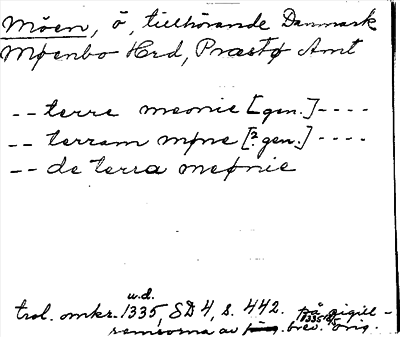 Möen, ö, tillhörande Danmark
Møenbo Hrd, Præstø Amt
-- terre meonie [gen.] ----
-- terram møne [?gen.] ----
-- de terra meønie
u.d.
trol. omkr. 1335, SD 4, s. 442. på sigill-
1335
remsorna av brev. orig.